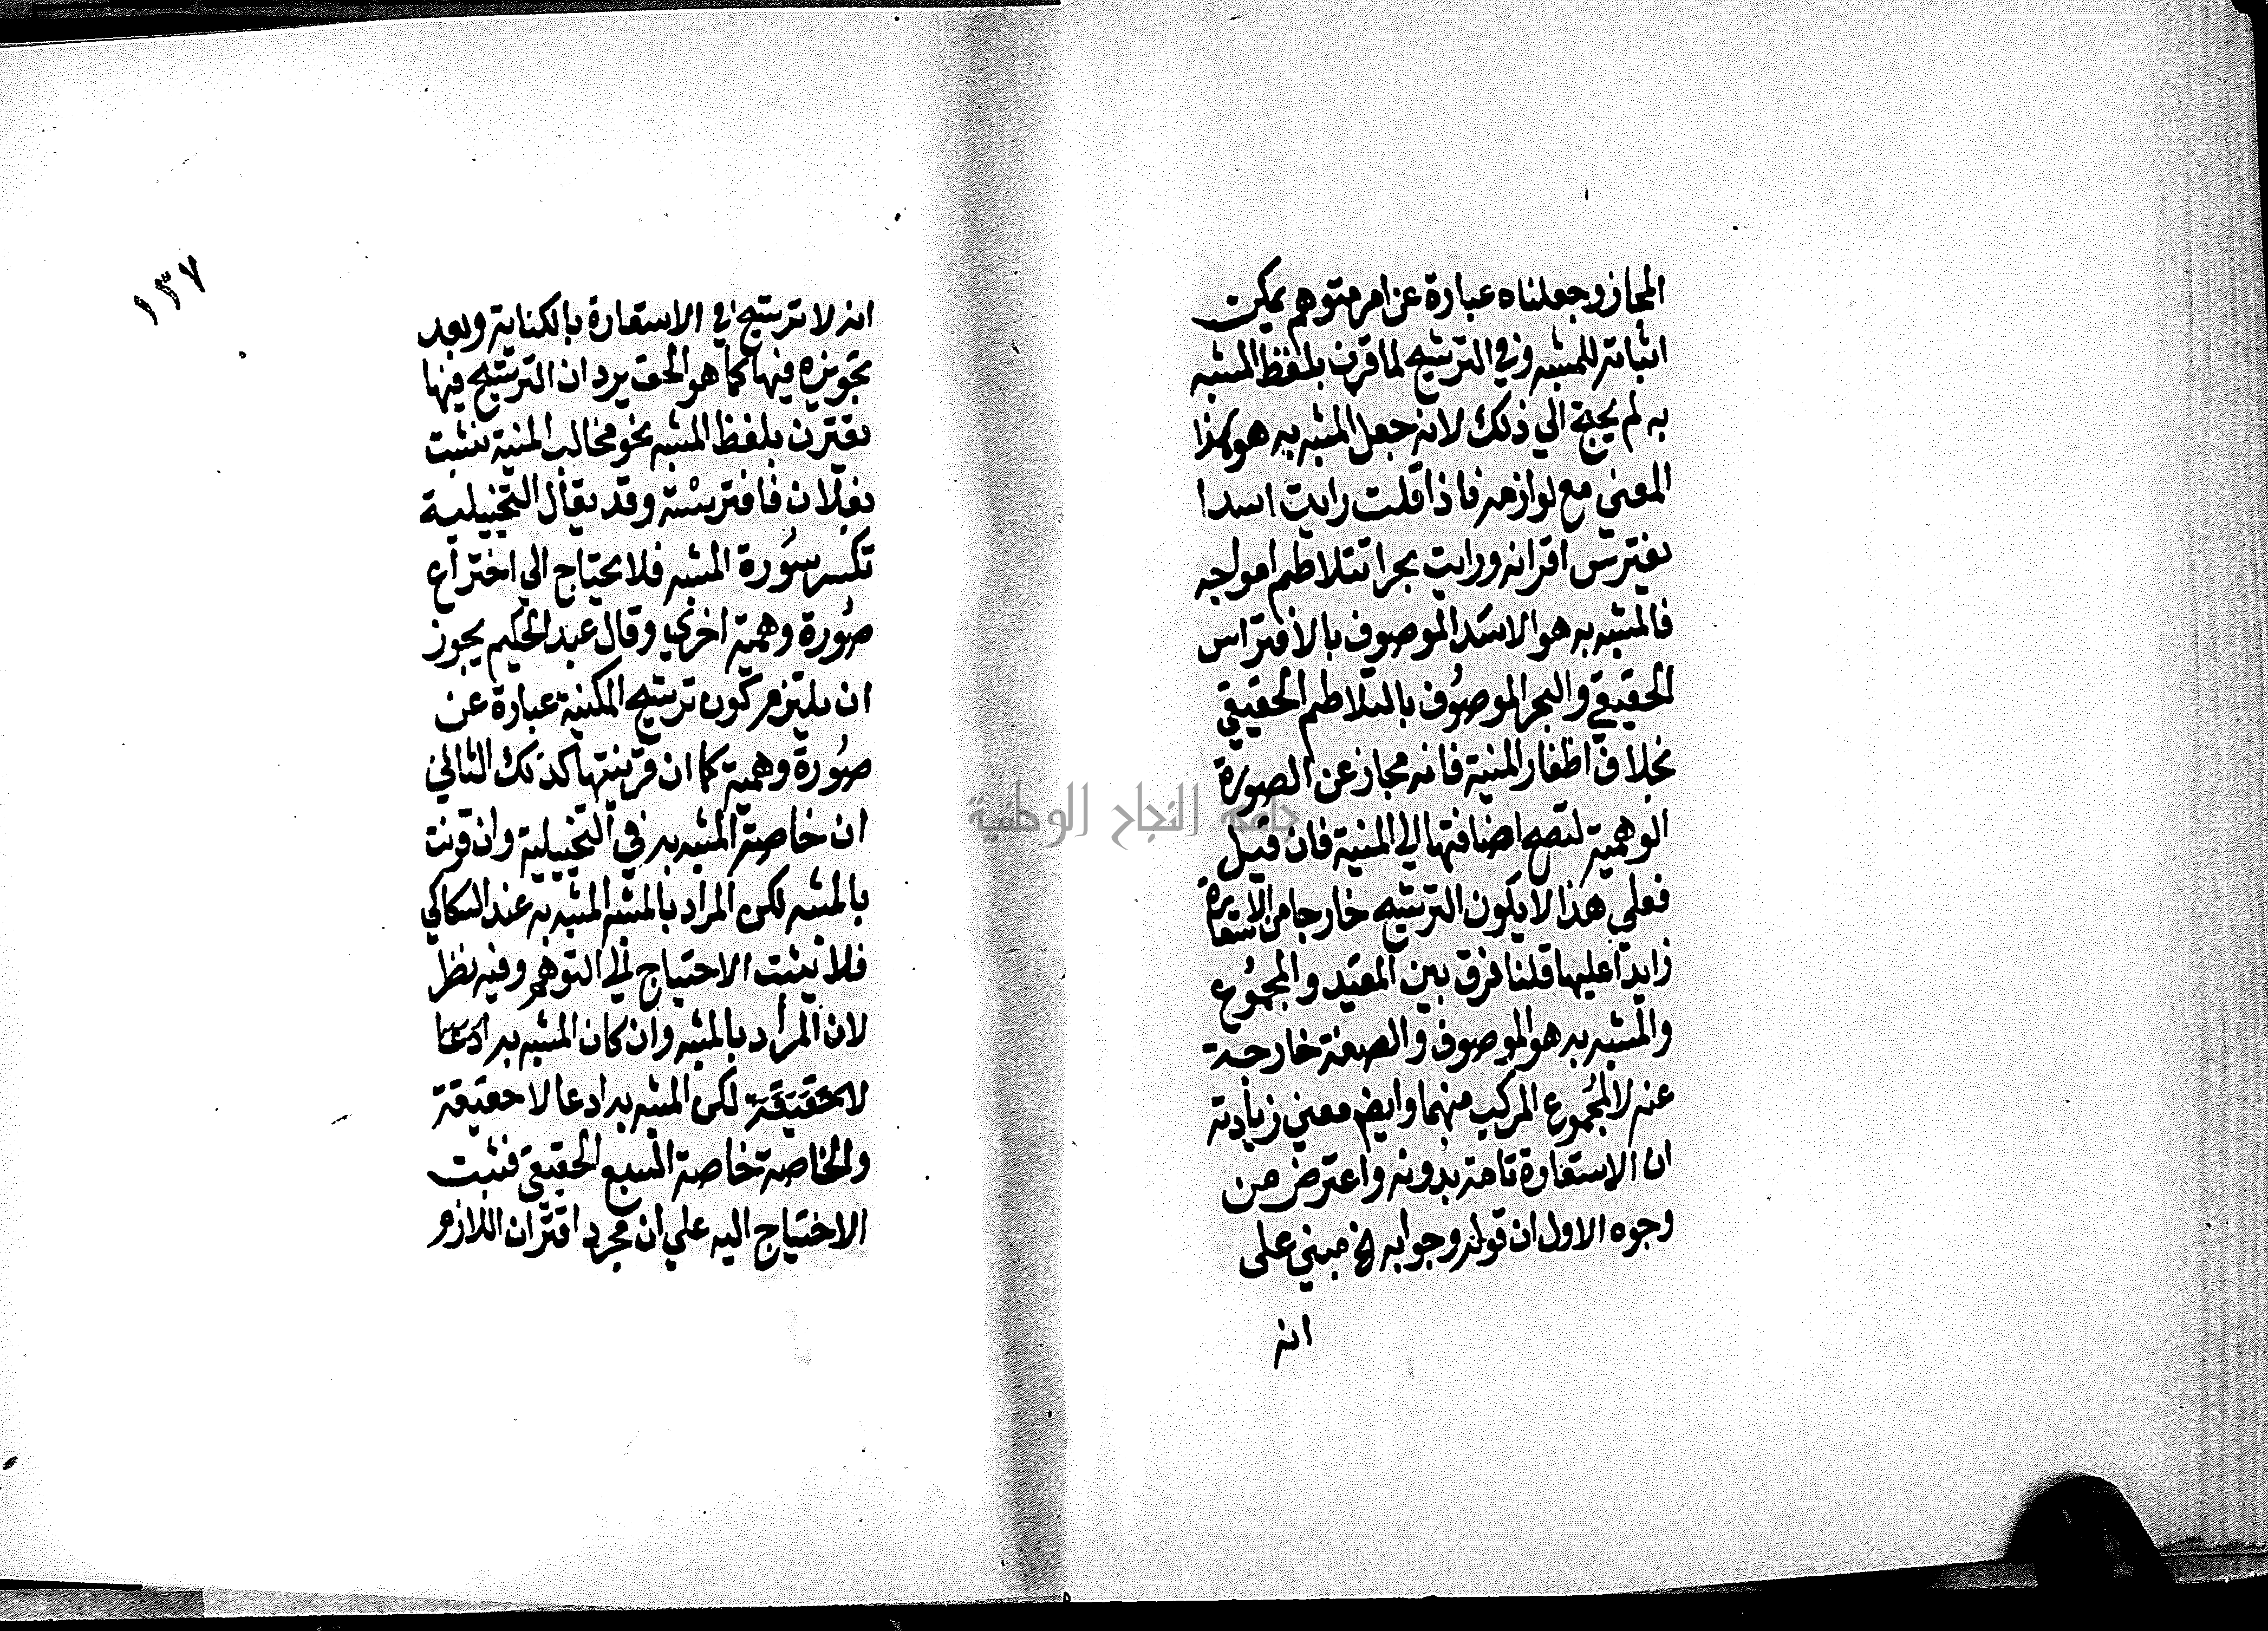 المجاز وجعلناه عبارة عن امر متوهم يمكن
اثباته للمشبه وفي الترشيح لما قرن بلفظ المشبه
به لم يحتج الي ذلك لانه جعل المشبه به هو هذا
المعني مع لوازمه فاذا قلت رايت اسدا
يفترس اقرانه ورايت بحرا تتلاطم امواجه
فالمشبه به هو الاسد الموصوف بالافتراس
الحقيقي والبحر الموصوف بالتلاطم الحقيقي
بخلاف اظفار المنية فانه مجاز عن الصورة
الوهمية لتصح اضافتها الي المنية فان قيل
فعلي هذا لا يكون الترشيح خارجا من الاستعارة
زايدا عليها قلنا فرق بين المقيد والمجموع
والمشبه به هو الموصوف والصفة خارجة
عنه لا المجموع المركب منهما وايض معني زيادته
ان الاستعارة تامة بدونه واعترض من
وجوه الاول ان قوله وجوابه الخ مبني على
انه
١٣٧
انه لا ترشيح في الاستعارة بالكناية وبعد
تجويزه فيها كما هو الحق يرد ان الترشيح فيها
يقترن بلفظ المشبه نحو مخالب المنية نشبت
بفلان فافترسته وقد يقال التخييلية
تكسر سورة المشبه فلا يحتاج الي اختراع
صورة وهمية اخري وقال عبد الحكيم يجوز
ان يلتزم كون ترشيح المكنية عبارة عن
صورة وهمية كما ان قرينتها كذلك الثاني
ان خاصة المشبه به في التخييلية وان قرنت
بالمشبه لكن المراد بالمشبه المشبه به عند السكاكي
فلا يثبت الاحتياج الي التوهم وفيه نظر
لان المراد بالمشبه وان كان المشبه به ادعا
لا حقيقة لكن المشبه به ادعا لا حقيقة
والخاصة خاصة السبع الحقيقي فثبت
الاحتياج اليه علي ان مجرد اقتران اللازم
جامعة النجاح الوطنية